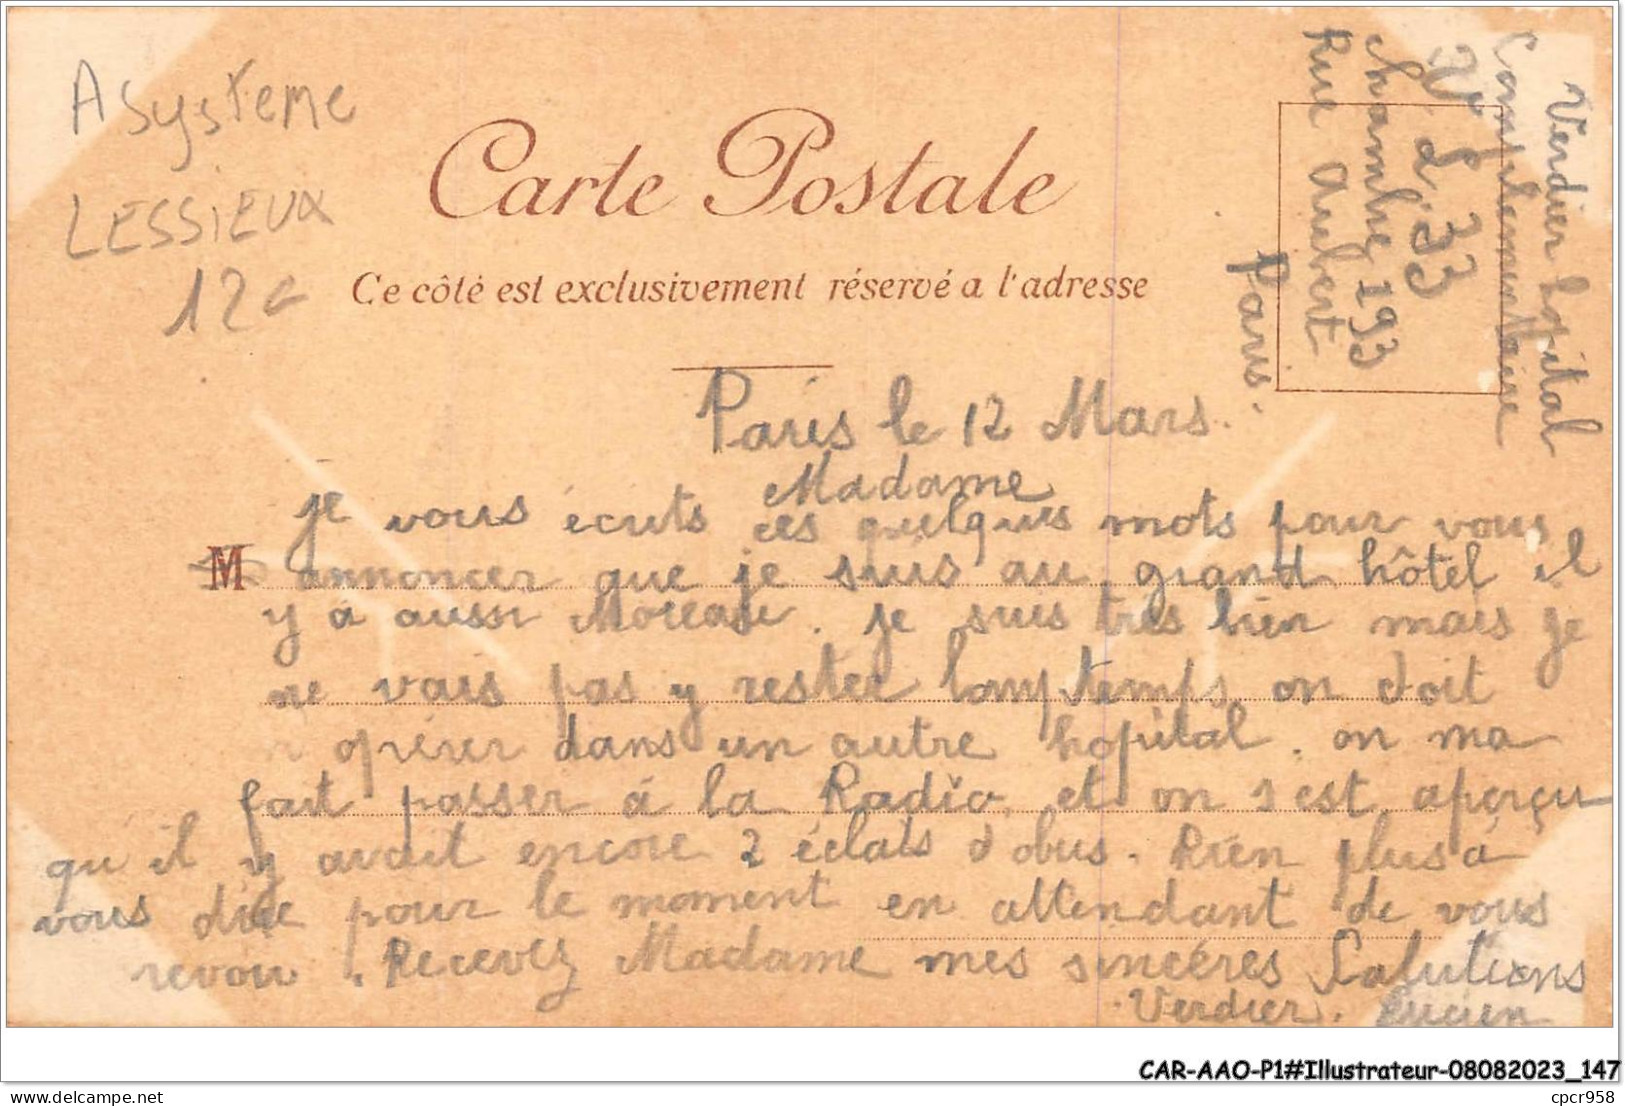 A Systeme
LESSIEUX
12c
Carte Postale
Ce côté est exclusivement réservé a l'adresse
Verdier hopital
Complementaire
V. G. 33
Chambre 193
Rue Aubert
Paris.
Paris le 12 Mars.
Madame
je vous écrits ces quelques mots pour vous
M annoncer que je suis au grand hôtel il
y a aussi Moreau. je suis très bien mais je
ne vais pas y rester lomptemps on doit
opérer dans un autre hopital. on ma
fait passer à la Radio et on s est aperçu
qu il y avait encore 2 éclats d obus. Rien plus à
vous dire pour le moment en attendant de vous
revoir. Recevez Madame mes sincéres Salutions
Verdier. Lucien
CAR-AAO-P1#Illustrateur-08082023_147
delcampe.net
cpcr958